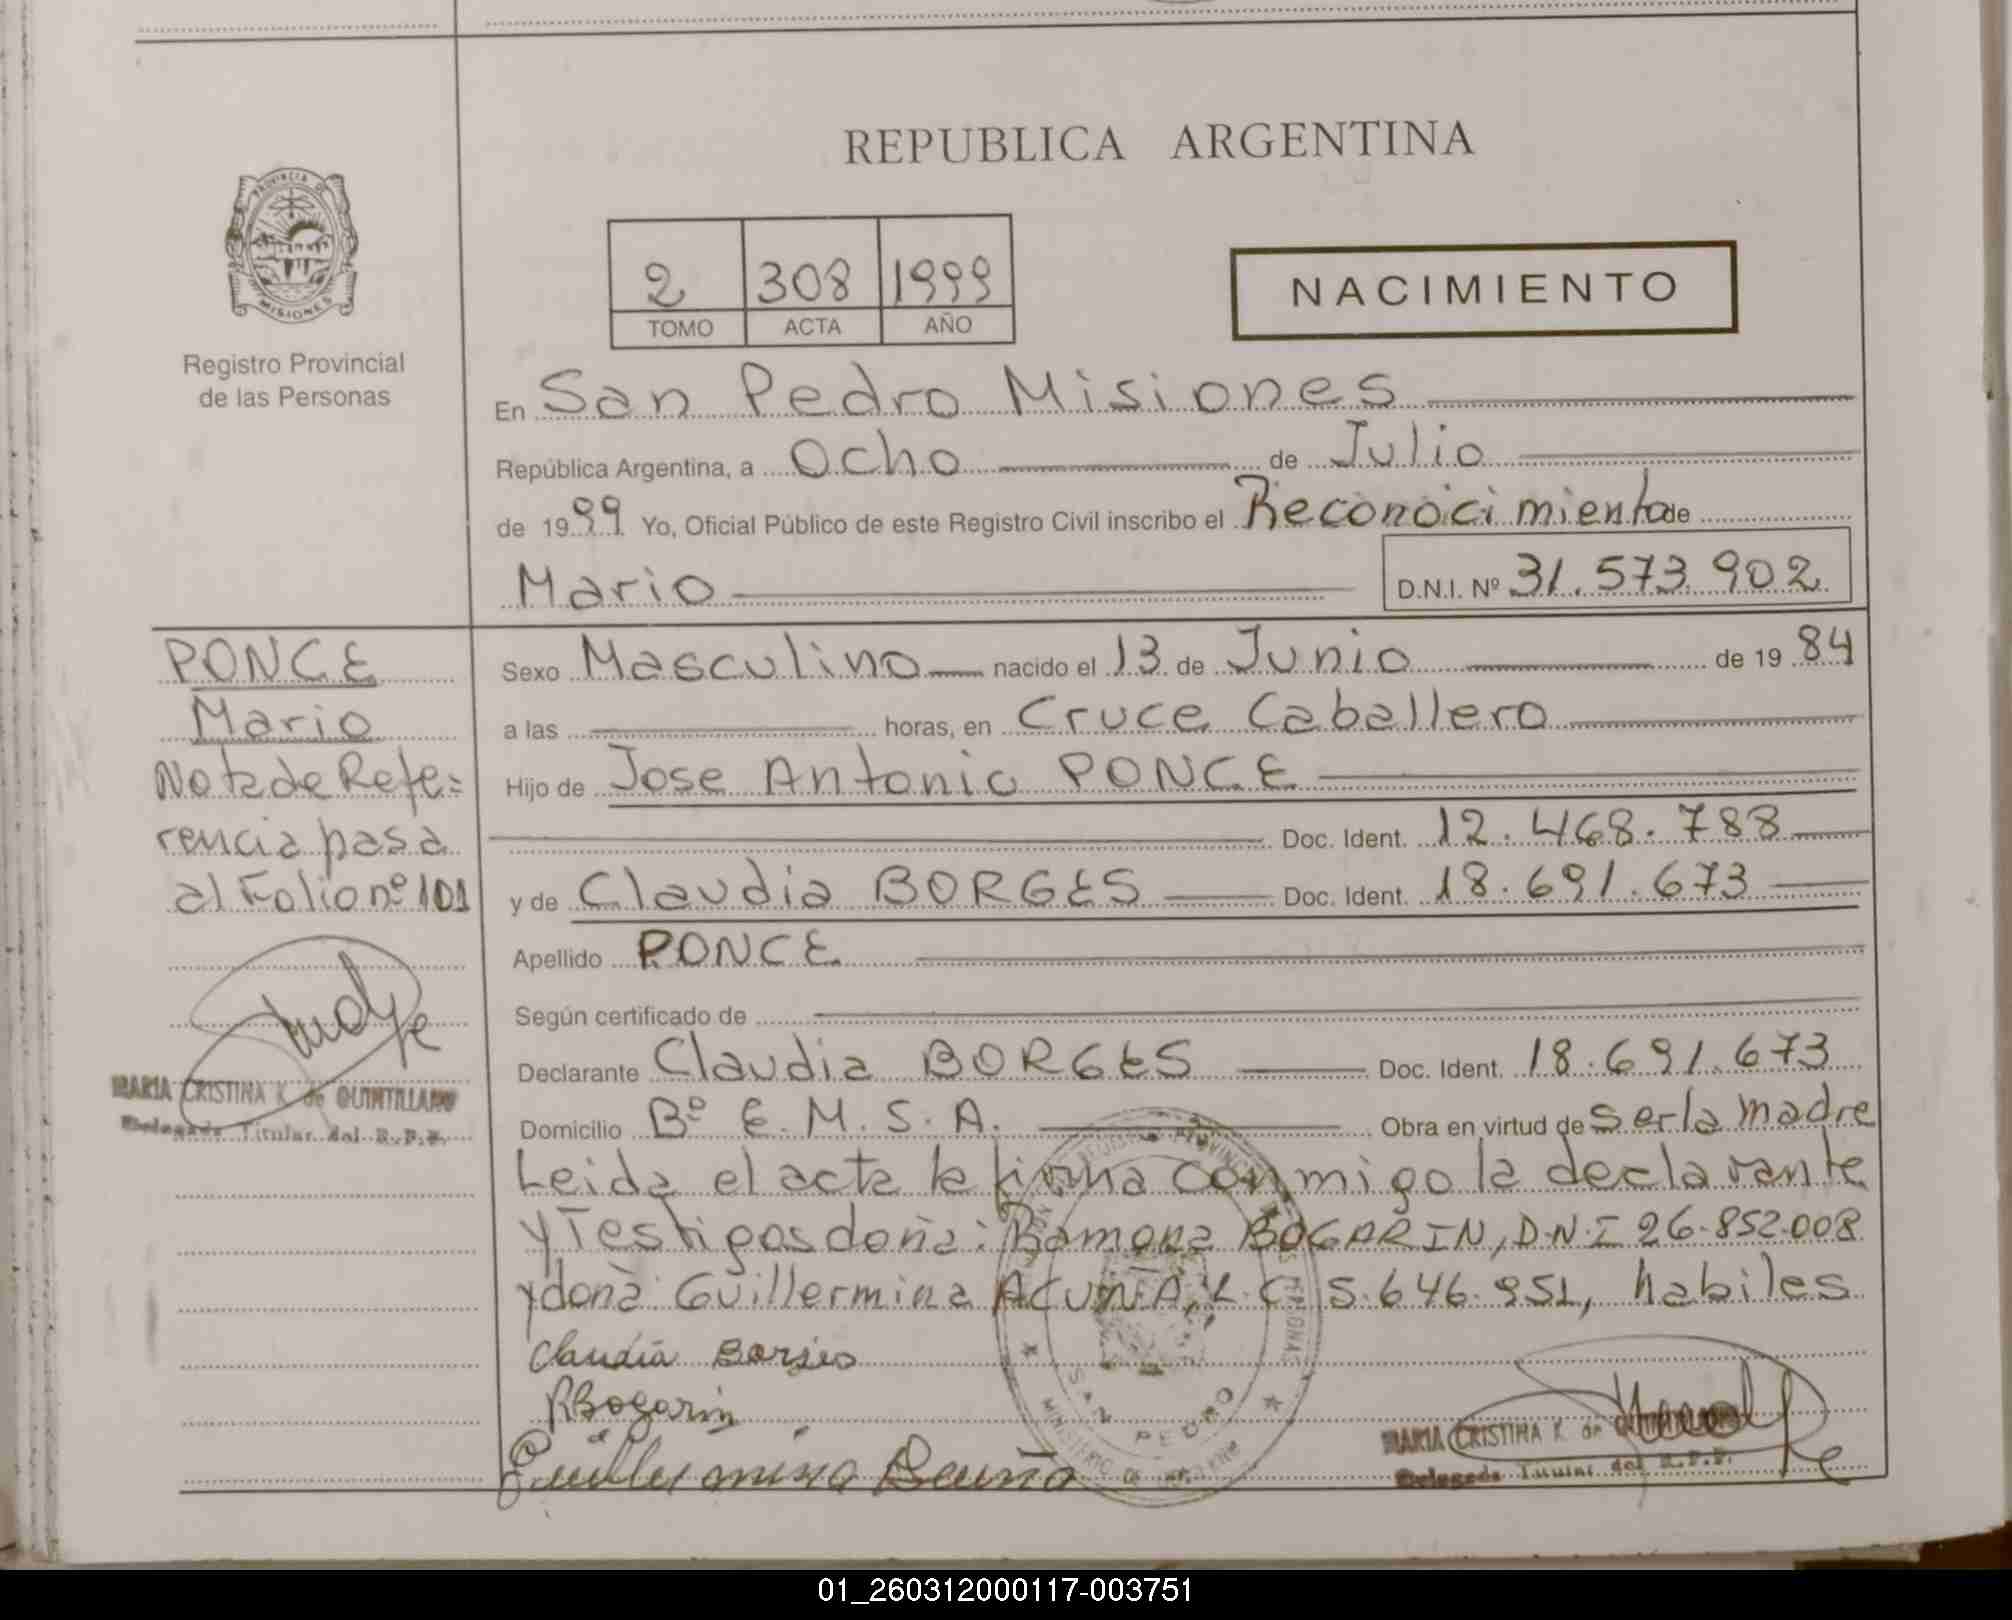 REPUBLICA ARGENTINA
PROVINCIA DE
MISIONES
Registro Provincial
de las Personas
2 308 1999
TOMO ACTA AÑO
NACIMIENTO
En San Pedro Misiones
República Argentina, a Ocho de Julio
de 1999 Yo, Oficial Público de este Registro Civil inscribo el Reconocimiento de
Mario D.N.I. Nº 31.573.902
PONCE
Mario
Nota de Refe=
rencia pasa
al Folio nº 101
MARIA CRISTINA K. de QUINTILLANO
Delegada Titular del R.P.P.
Sexo Masculino nacido el 13 de Junio de 19 84
a las horas, en Cruce Caballero
Hijo de Jose Antonio PONCE
Doc. Ident. 12.468.788
y de Claudia BORGES Doc. Ident. 18.691.673
Apellido PONCE
Según certificado de
Declarante Claudia BORGES Doc. Ident. 18.691.673
Domicilio Bº E.M.S.A. Obra en virtud de ser la madre
Leida el acta la firma conmigo la declarante
y Testigos doña: Ramona BOGARIN, D.N.I 26.852.008
y doña: Guillermina ACUÑA, L.C. 5.646.951, habiles
Claudia Borges
RBogarin
SAN PEDRO
MARIA CRISTINA K. de
Delegada Titular del R.P.P.
01_260312000117-003751